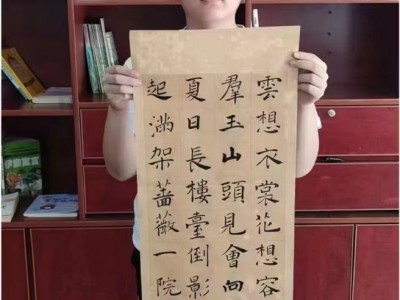 雲想衣裳花想容
羣玉山頭見會向
夏日長樓臺倒影
起滿架薔薇一院